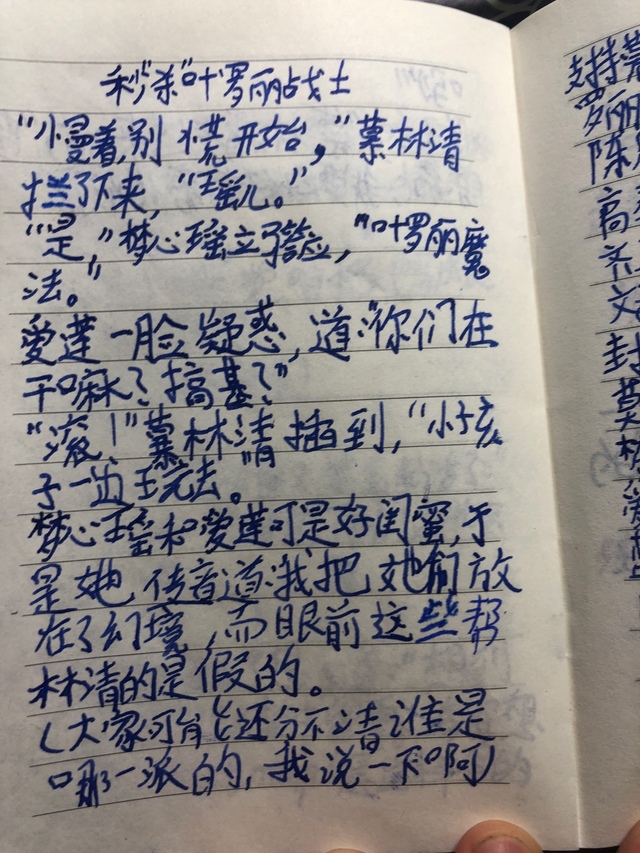 秒“杀”叶罗丽战士
“慢着,别慌开始,”慕林清
拦了下来,“瑶儿。”
“是,”梦心瑶立了答应,“叶罗丽魔
法。”
爱莲一脸疑惑,道:“你们在
干嘛?搞基?”
“滚!”慕林清插到,“小孩
子一边玩去。”
梦心瑶和爱莲可是好闺蜜,于
是她传音道:我把她们放
在了幻境,而眼前这些帮
林清的是假的。
(大家可能还分不清谁是
哪一派的,我说一下啊)
支持慕
罗丽
陈
高
齐
文
封
莫